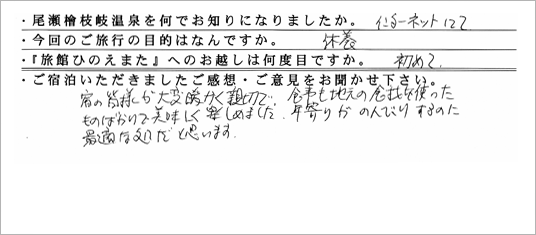 ・尾瀬檜枝岐温泉を何でお知りになりましたか。 インターネットにて
・今回のご旅行の目的はなんですか。 休養
・『旅館ひのえまた』へのお越しは何度目ですか。 初めて、
・ご宿泊いただきましたご感想・ご意見をお聞かせ下さい。
宿の皆様が大変明かく親切で、食事も地元の食材を使った
ものばかりで美味しく楽しめました。年寄りがのんびりするのに
最適な処だと思います。